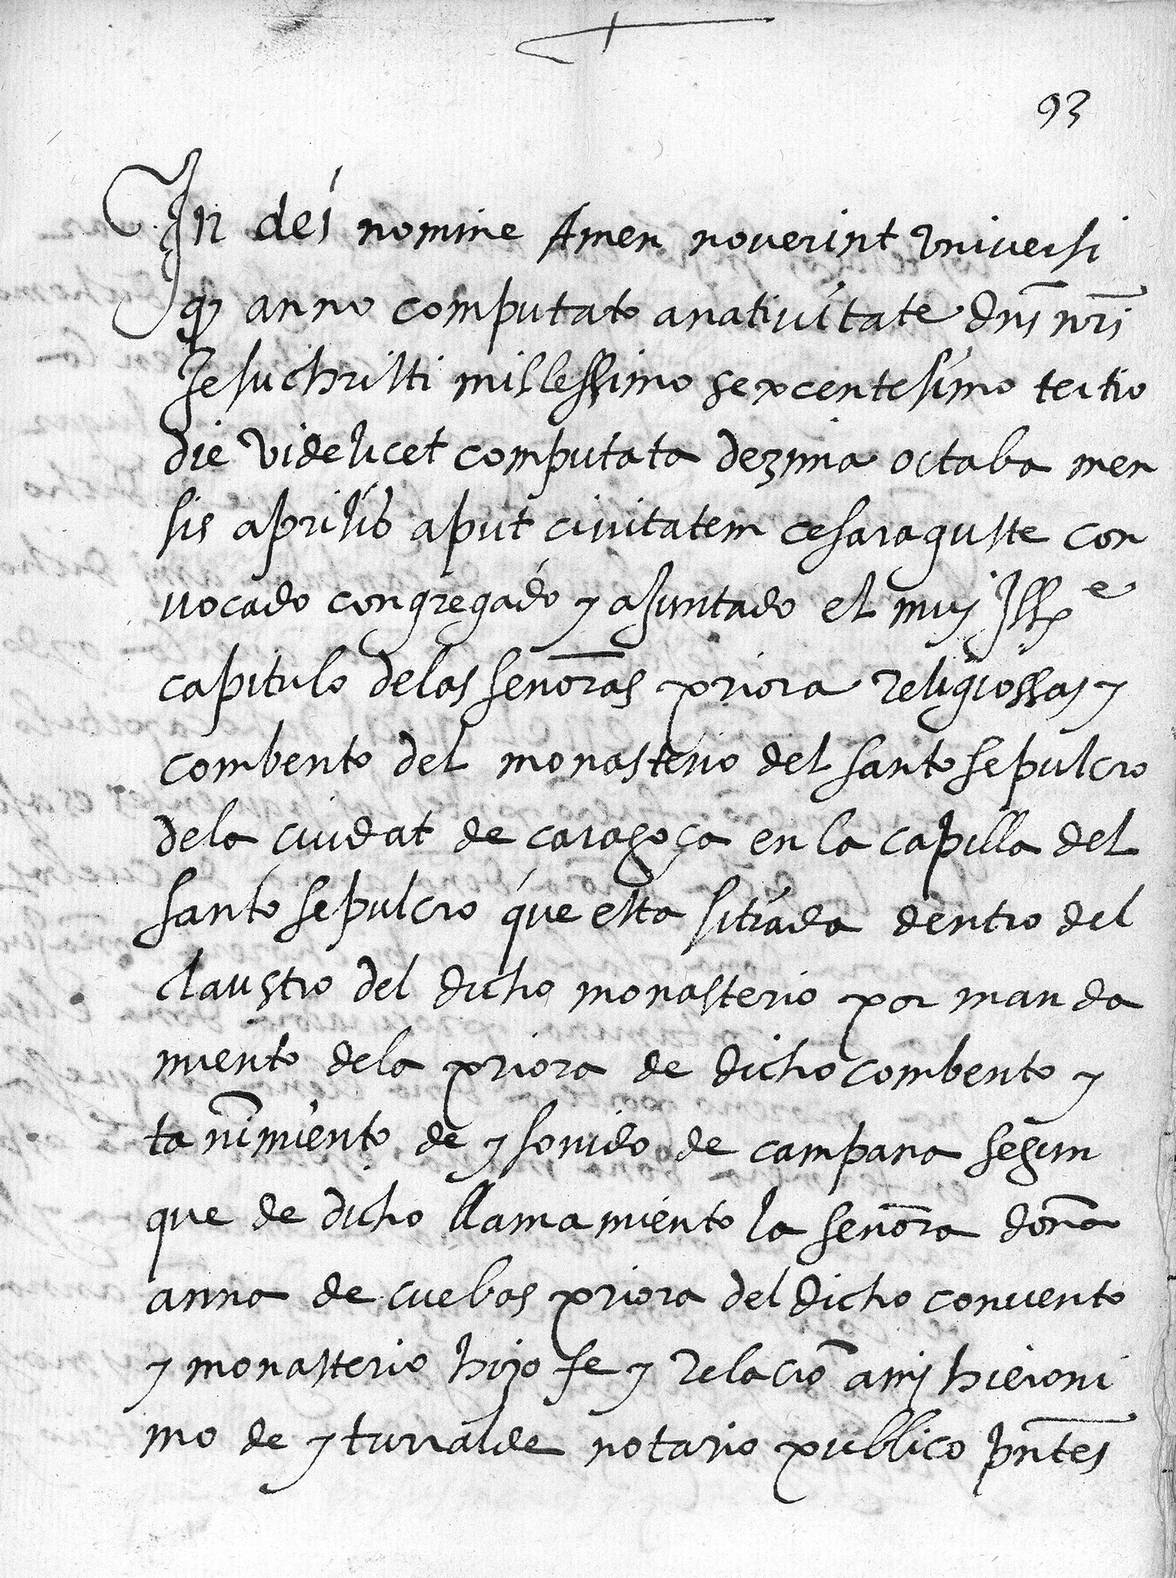 93
In dei nomine Amen noverint vniversi
q anno computato anativitate dnī nrī
Jesuchristi millessimo sexcentesimo tertio
die videlicet computata dezima octaba men
sis aprilis aput civitatem cesarauguste con
uocado congregado y ajuntado el muy Ille
capitulo delas señoras priora religiossas y
combento del monasterio del santo sepulcro
dela ciudat de caragoça en la capilla del
santo sepulcro que esta sitiada dentro del
claustro del dicho monasterio por manda
miento dela priora de dicho combento y
tañimiento de y sonido de campana segun
que de dicho llamamiento la señora doña
anna de cuebas priora del dicho convento
y monasterio hizo fe y relaciō ami hieroni
mo de yturralde notario publico pntes